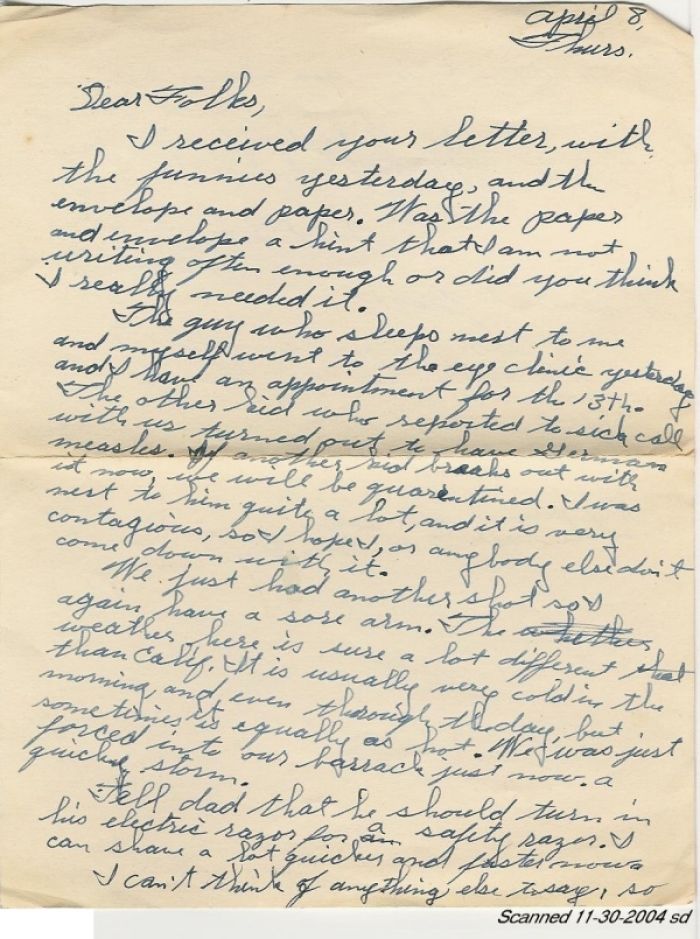 April 8,
Thurs.
Dear Folks,
I received your letter, with
the funnies yesterday, and the
envelope and paper. Was the paper
and envelope a hint that I am not
writing often enough or did you think
I really needed it.
The guy who sleeps next to me
and myself went to the eye clinic yesterday
and I have an appointment for the 13th.
The other kid who reported to sick call
with us turned out to have German
measles. If another kid breaks out with
it now, we will be quarentined. I was
next to him quite a lot, and it is very
contagious, so I hope I, or anybody else don't
come down with it.
We just had another shot so I
again have a sore arm. The
weather here is sure a lot different
than Calif. It is usually very cold in the
morning and even through the day, but
sometimes it is equally as hot. We was just
forced into our barrack just now. a
quicky storm.
Tell dad that he should turn in
his electric razor for a safety razor. I
can shave a lot quicker and faster now
I can't think of anything else to say, so
Scanned 11-30-2004 sd